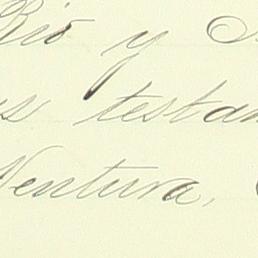 Rió y
us testam
Ventura,